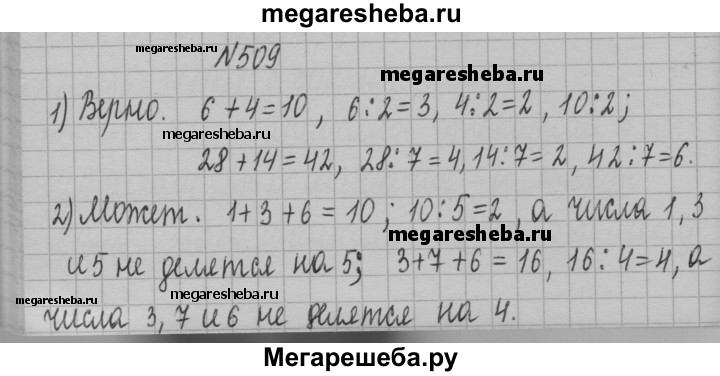 megaresheba.ru
№509
megaresheba.ru
megaresheba.ru
1) Верно. 6+4=10, 6:2=3, 4:2=2, 10:2;
megaresheba.ru
28+14=42, 28:7=4, 14:7=2, 42:7=6.
2) Может. 1+3+6=10; 10:5=2, а числа 1, 3
megaresheba.ru
и 5 не делятся на 5; 3+7+6=16, 16:4=4, а
megaresheba.ru
megaresheba.ru
числа 3, 7 и 6 не делятся на 4.
Мегарешеба.ру